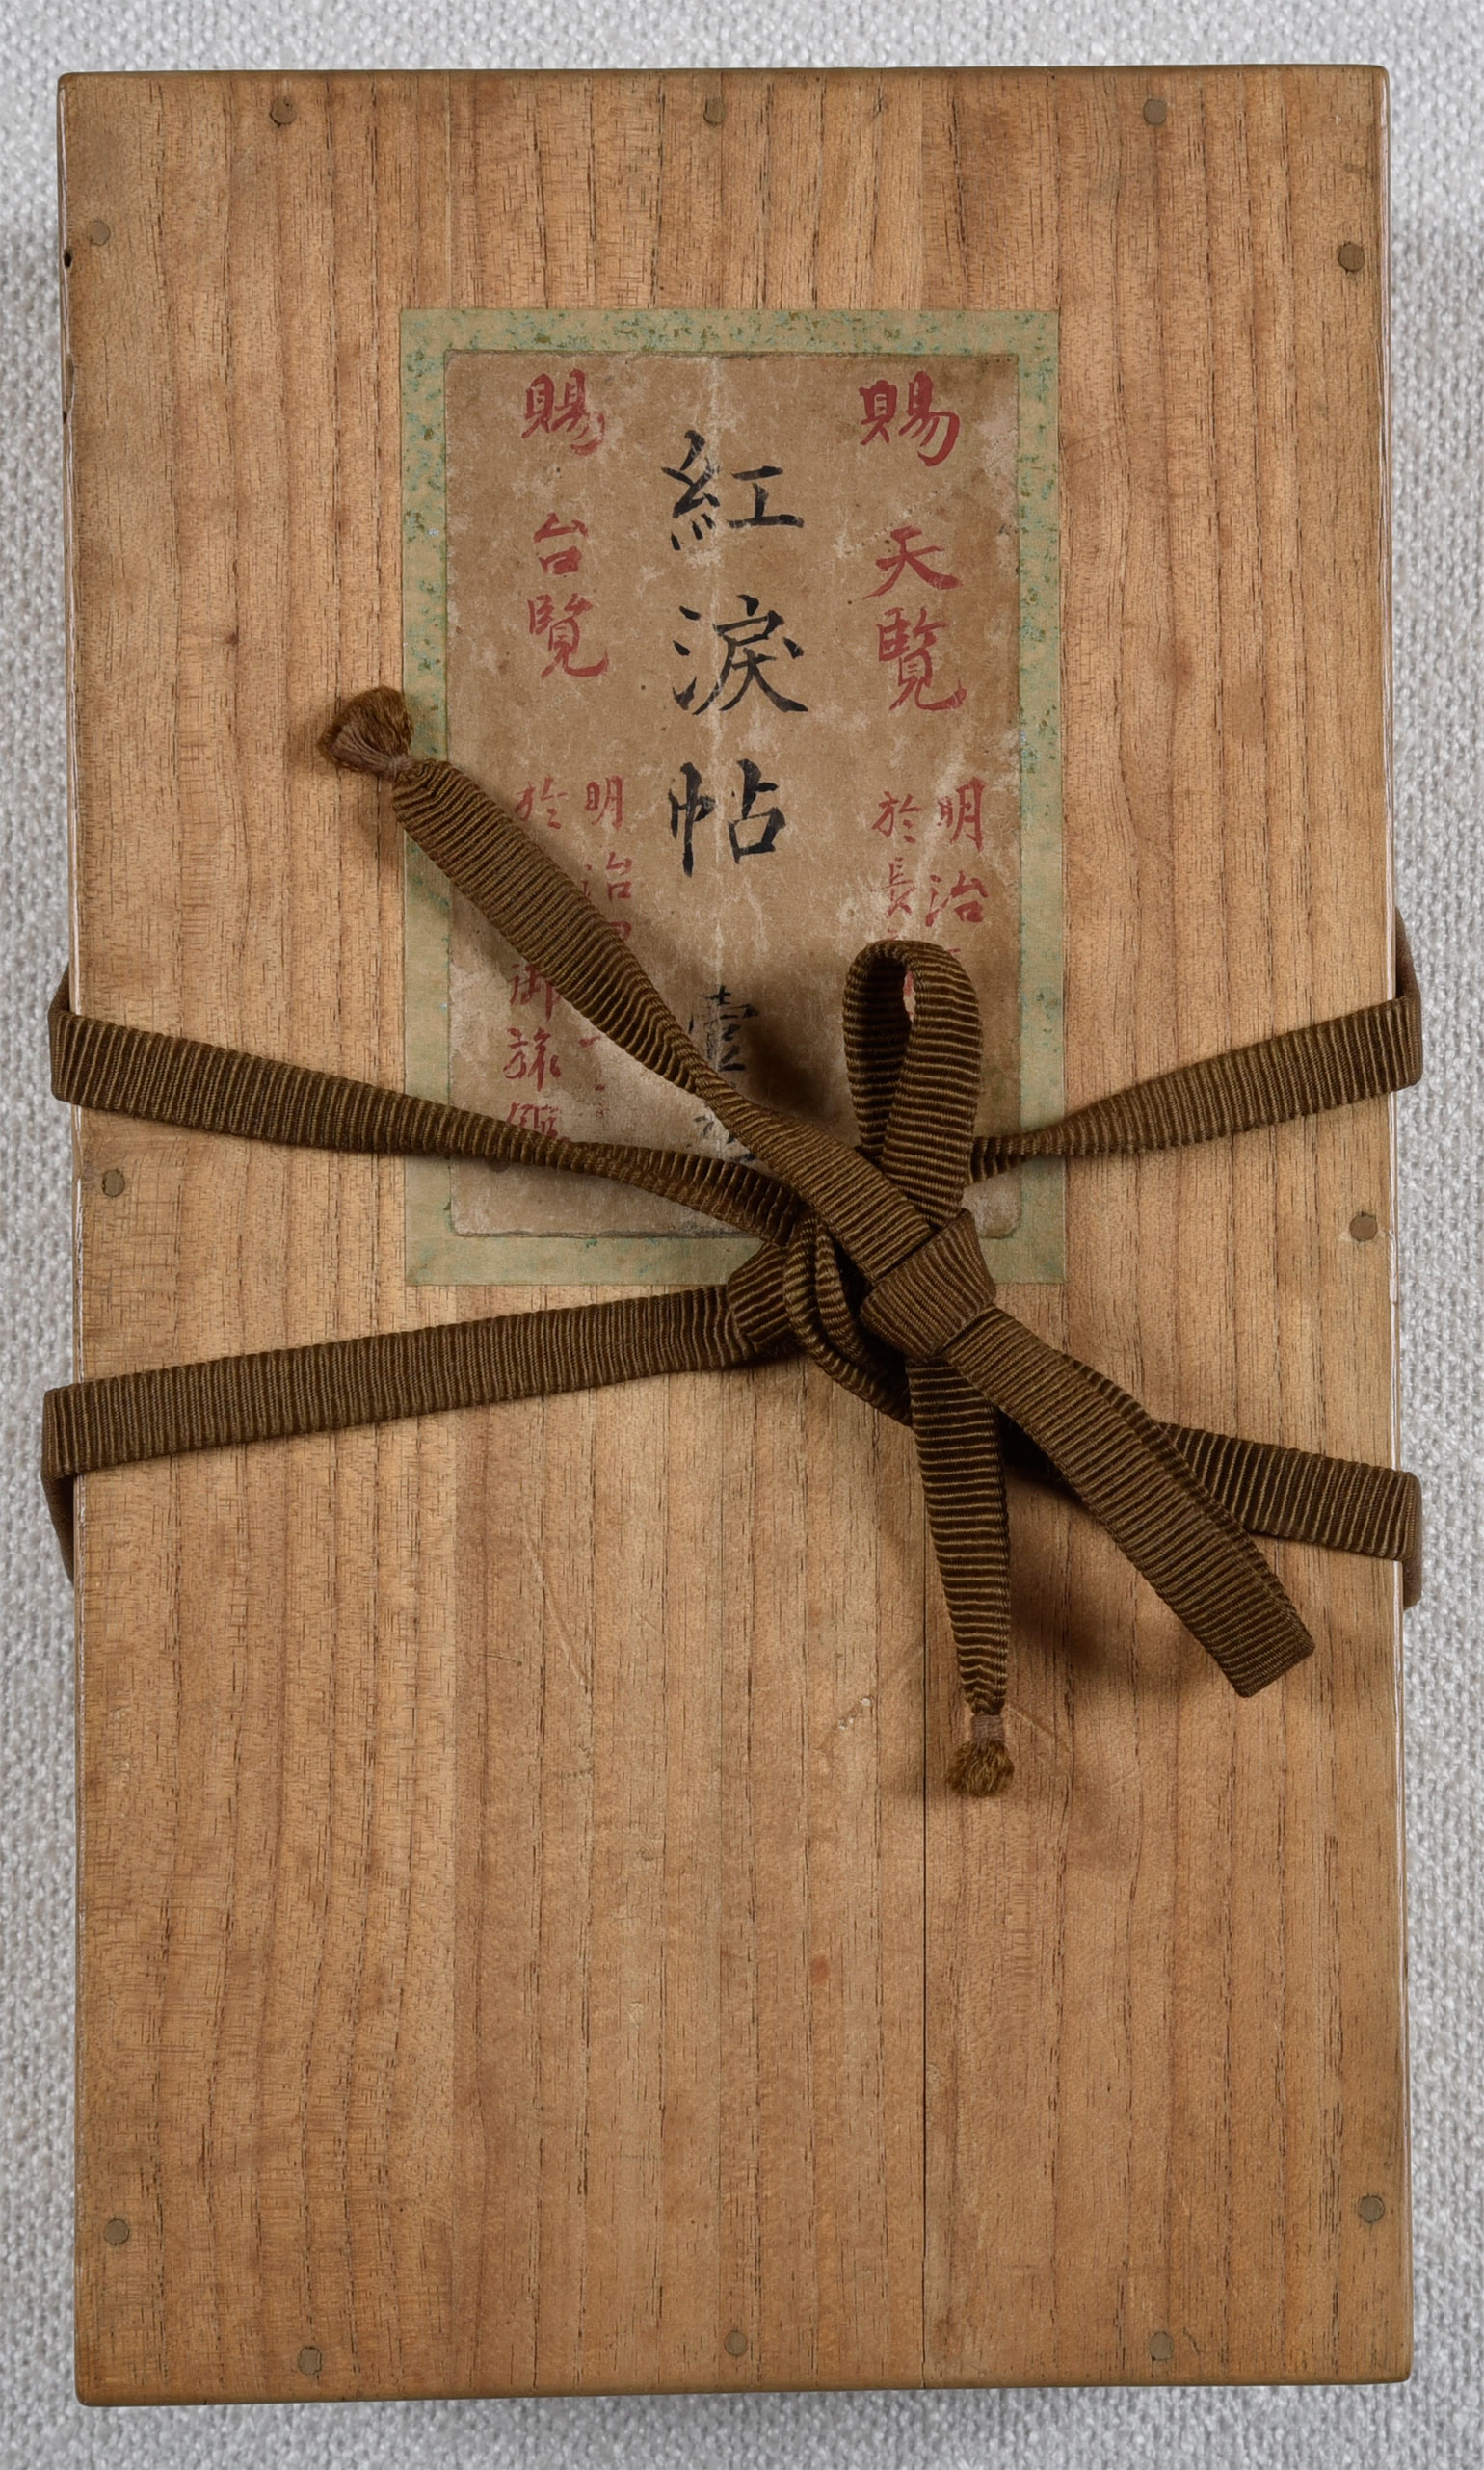 賜 天覧
明治
於長
紅淚帖 壹
賜 台覧
明治
於 御旅館